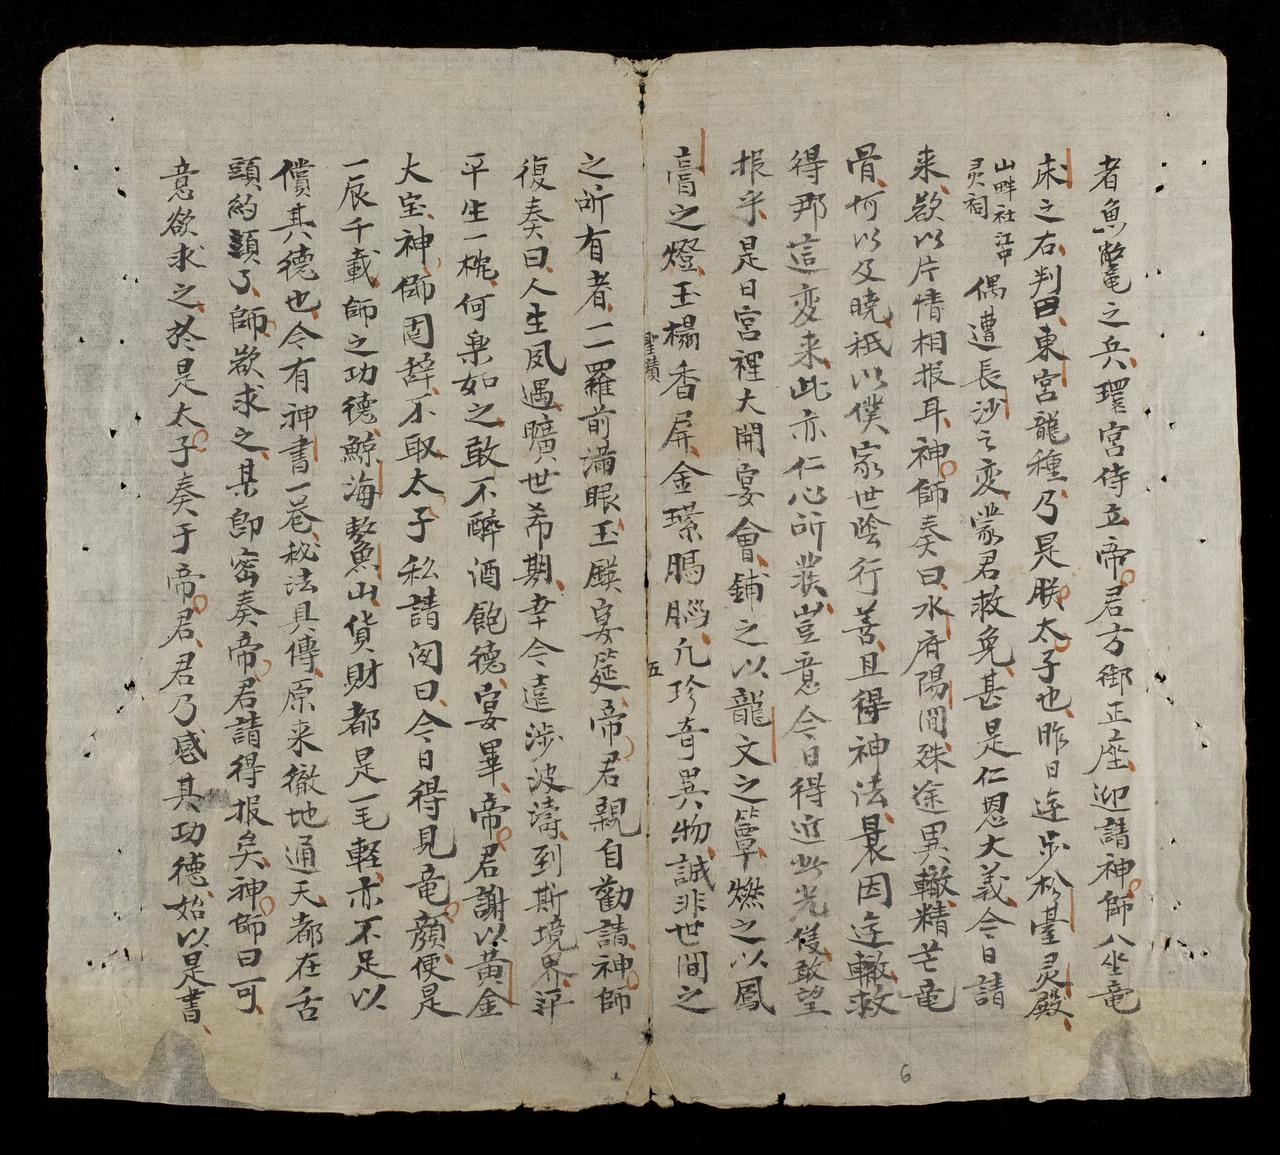 者魚鱉之兵環宮侍立帝君方御正座迎請神師八坐竜
床之右判曰東宮龍種乃是朕太子也昨日遊步松臺灵殿
山畔社江中灵祠偶遭長沙之変蒙君救免甚是仁恩大義今日請
来欲以片情相报耳神師奏曰水府陽間殊途異轍精芒竜
骨何以及曉祇以僕家世陰行善且得神法曩因途轍救
得那這変来此亦仁心所發豈意今日得近此光僅敢望
报乎是日宮裡大開宴會鋪之以龍文之簟燃之以鳳
膏之燈玉榻香屏金璖瑪腦凢珍奇異物誠非世間之
聖蹟
五
之所有者一一羅前滿眼玉饌宴莚帝君親自勸請神師
復奏曰人生夙遇曠世希期幸今遠涉波濤到斯境界萍
平生一梡何楽如之敢不醉酒飽德宴畢帝君謝以黃金
大宝神師固辞不取太子私請囪曰今日得見竜顏便是
一辰千載師之功德鯨海鰲山貨財都是一毛軽亦不足以
償其德也今有神書一卷秘法具傳原来徹地通天都在舌
頭約頭了師欲求之某即密奏帝君請得报矣神師曰可
意欲求之於是太子奏于帝君君乃感其功德始以是書
6